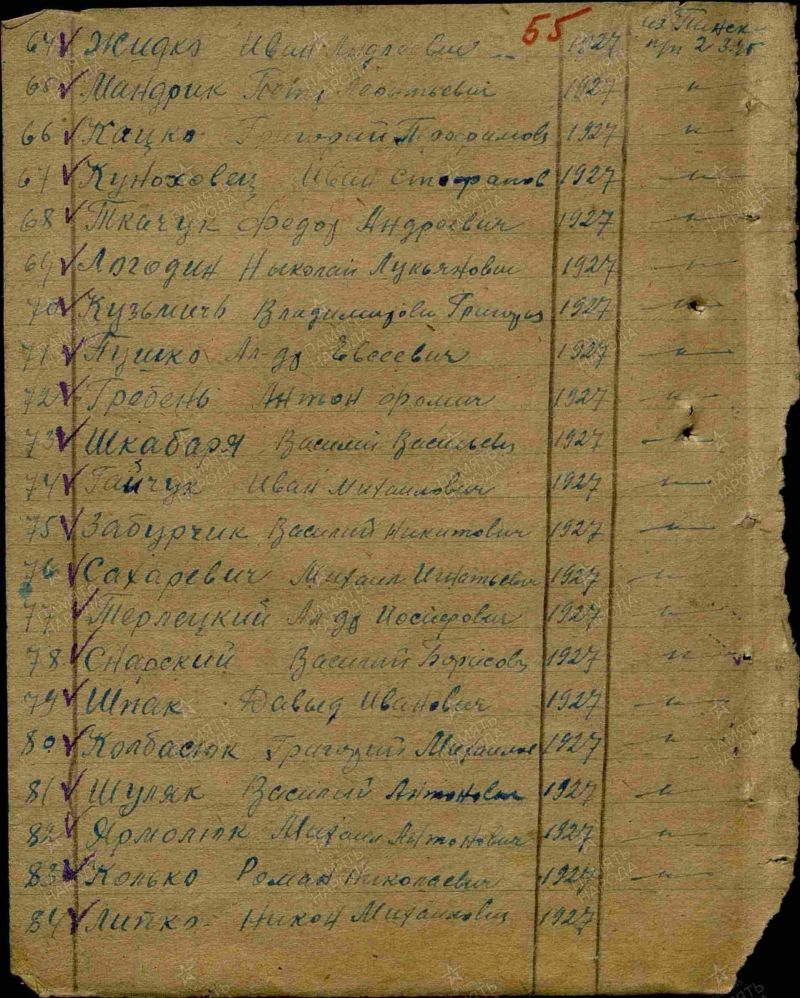 55
из Пинск
64 Жидко Иван 1927 п/п 2
65 Мандрик Петр 1927 –"–
66 Кацко Григорий 1927 –"–
67 Куноховец Иван Степанов 1927 –"–
68 Ткачук Федор Андреевич 1927 –"–
69 Логодин Николай Лукьянович 1927 –"–
70 Кузьмичь Григорьев 1927 –"–
71 Пушко Ал-др Евсеевич 1927 –"–
72 Гребень Антон Фомич 1927 –"–
73 Шкабаря Василий Васильевич 1927 –"–
74 Гайчук Иван Михайлович 1927 –"–
75 Забурчик Василий Никитович 1927 –"–
76 Сахаревич Михаил Игнатьевич 1927 –"–
77 Терлецкий Ал-др Иосифович 1927 –"–
78 Снарский Василий Борисович 1927 –"–
79 Шпак Давыд Иванович 1927 –"–
80 Колбасюк Григорий 1927 –"–
81 Шуляк Василий Антонович 1927 –"–
82 Ярмолюк Михаил Антонович 1927 –"–
83 Колько Роман Николаевич 1927 –"–
84 Липко Никон Михайлович 1927